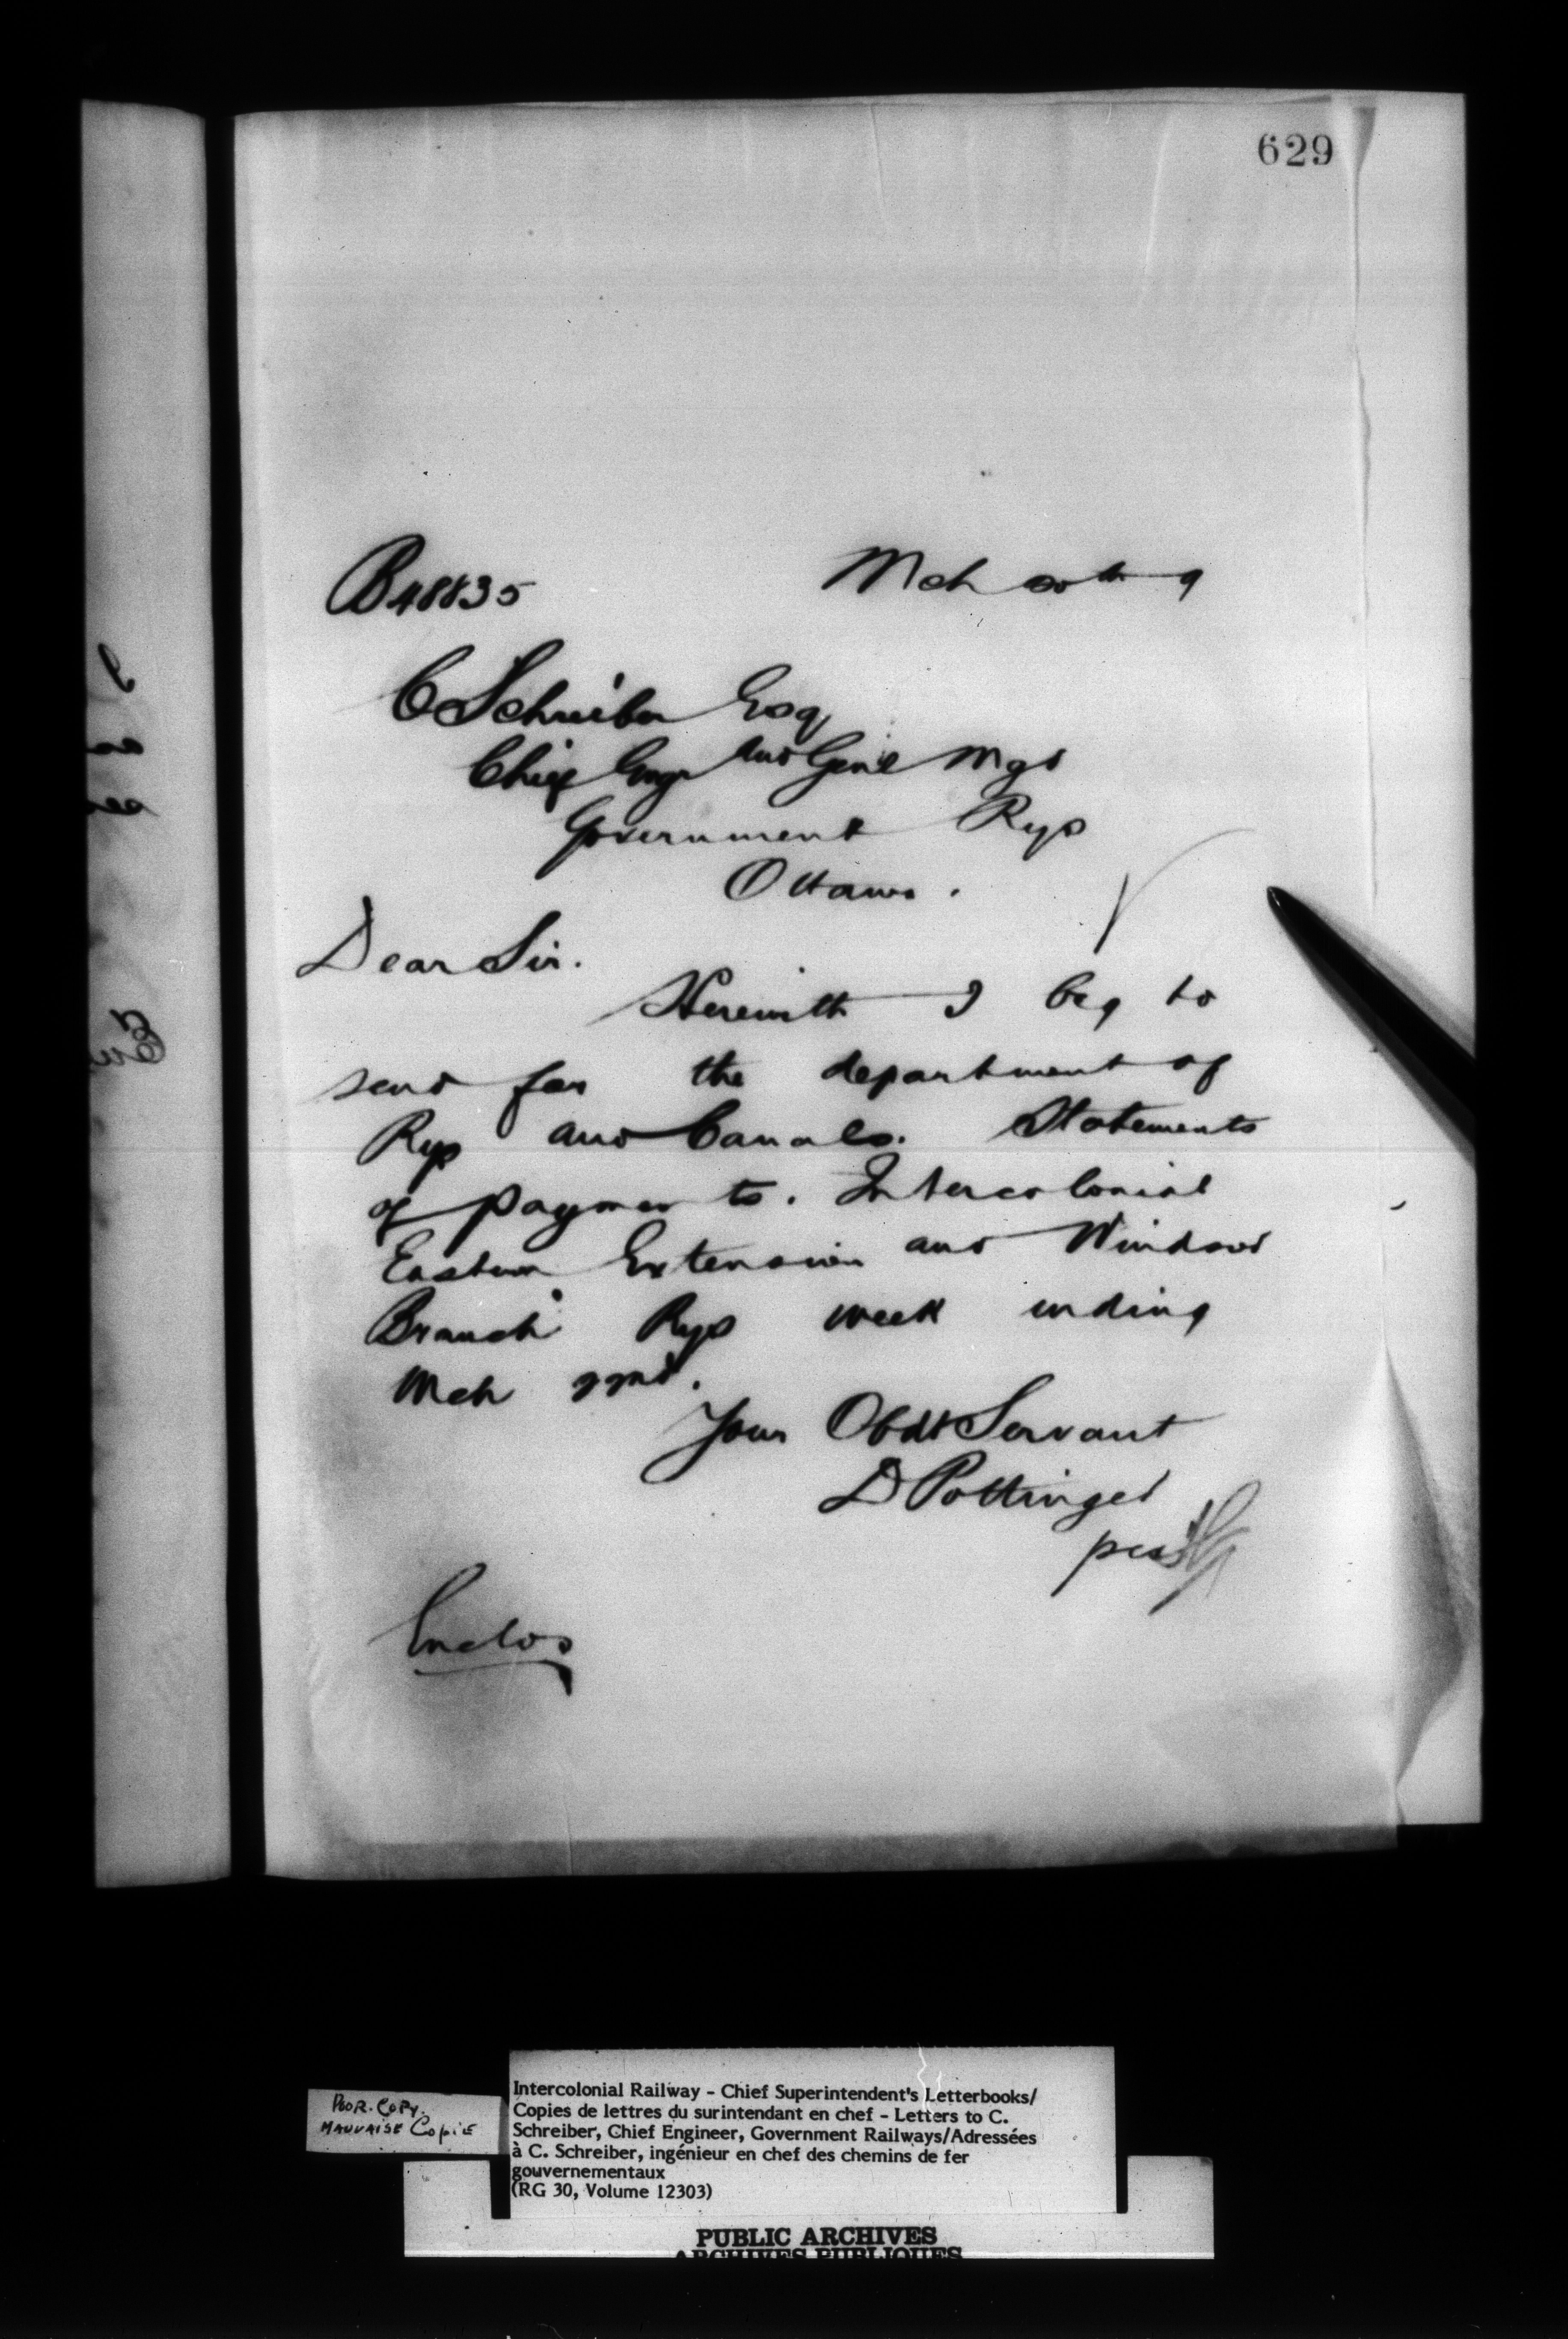 629
B48835 Mch 9
C Schreiber Esq
Chief Engr and Genl Mgr
Government Rys
Ottawa.
Dear Sir.
Herewith I beg to
send for the department of
Rys and Canals. Statements
of payments. Intercolonial
Eastern Extension and Windsor
Branch Rys week ending
Mch 22nd.
Your Obdt Servant
D Pottinger
per
Enclos
POOR. COPY.
MAUVAISE Copie
Intercolonial Railway - Chief Superintendent's Letterbooks/
Copies de lettres du surintendant en chef - Letters to C.
Schreiber, Chief Engineer, Government Railways/Adressées
à C. Schreiber, ingénieur en chef des chemins de fer
gouvernementaux
(RG 30, Volume 12303)
PUBLIC ARCHIVES
ARCHIVES PUBLIQUES